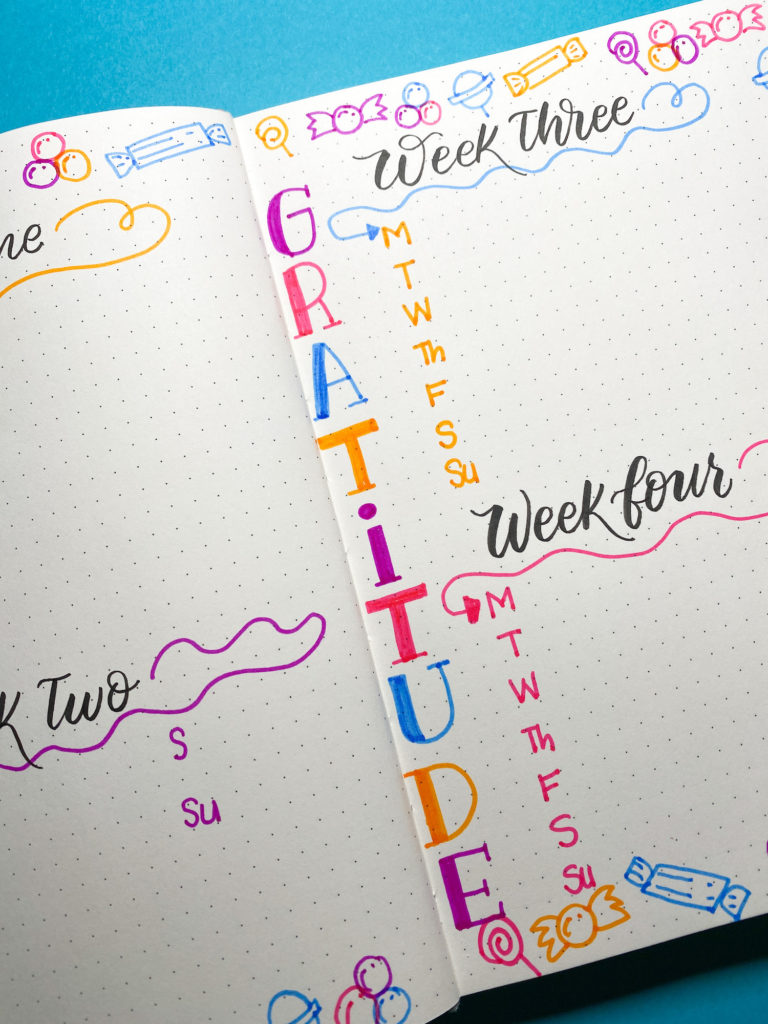 ne
k Two
S
Su
GRATiTUDE
Week Three
M
T
W
Th
F
S
Su
Week four
M
T
W
Th
F
S
Su